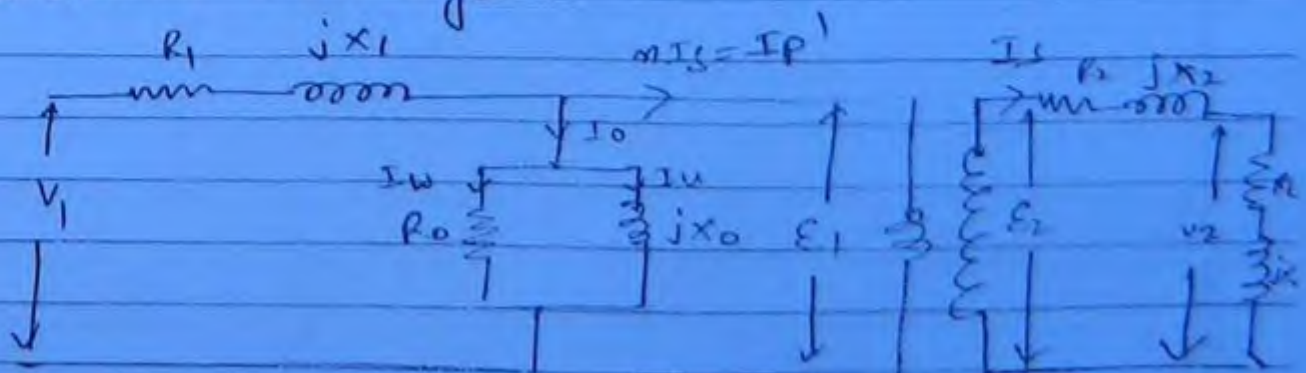 R1 jx1 nIs = Ip' Is R2 jx2
I0
Iw Iu
V1 R0 jx0 E1 E2 v2 R
jx